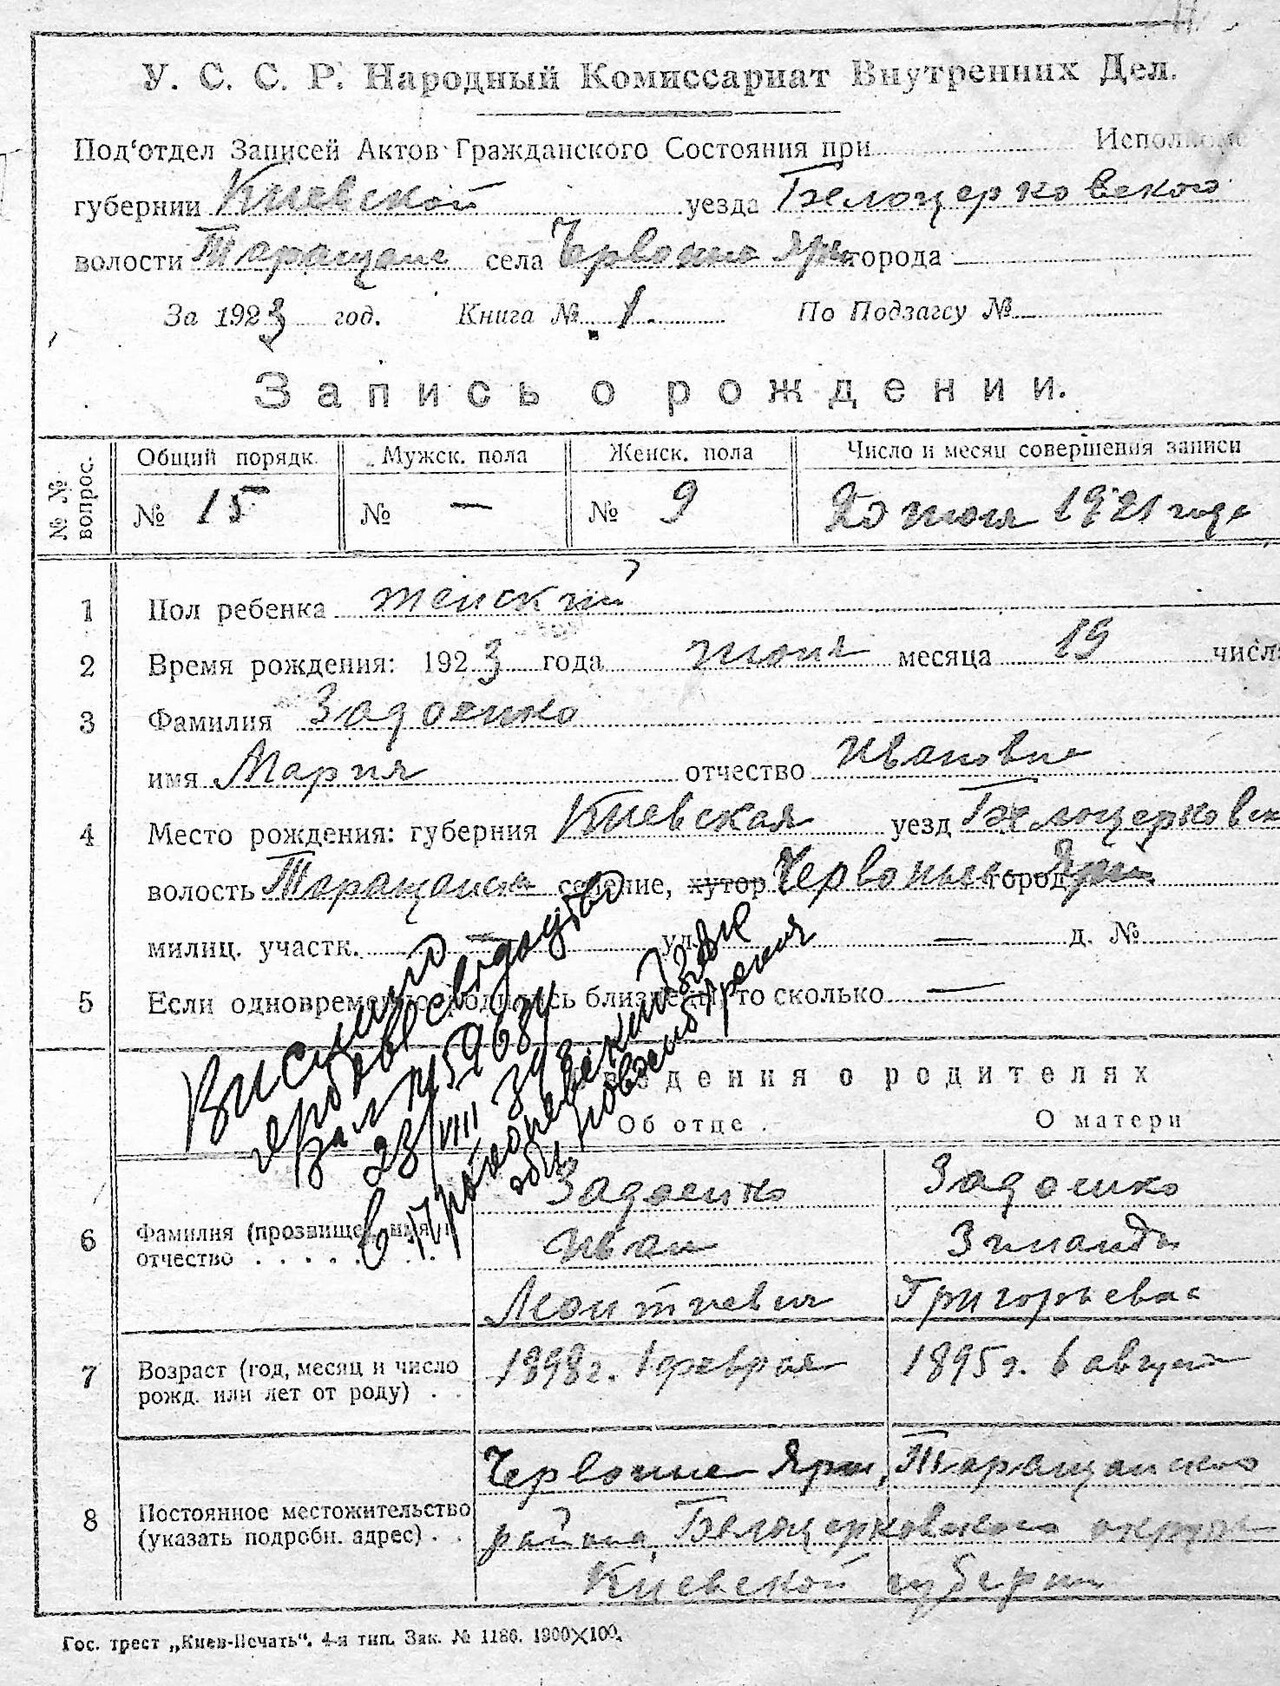 У. С. С. Р. Народный Комиссариат Внутренних Дел.
Под'отдел Записей Актов Гражданского Состояния при
губернии Киевской уезда Белоцерковского
волости Таращанс села Червоные Яры города —
За 1923 год. Книга № 1. По Подзагсу №
Запись о рождении.
№ № вопрос.
Общий порядк. Мужск. пола Женск. пола Число и месяц совершения записи
№ 15 № — № 9 20 июня 1921 года
1 Пол ребенка женский
2 Время рождения: 1923 года июня месяца 19 числа
3 Фамилия Задоенко
имя Мария отчество Ивановна
4 Место рождения: губерния Киевская уезд Белоцерковск
волость Таращанск селение, хутор Червоные Яры город
милиц. участк. — ул. — д. №
5 Если одновременно родились близнецы, то сколько —
свидоцтво
№ 59684
23/VIII 34
в
Сведения о родителях
Об отце. О матери
6 Фамилия (прозвище), имя и отчество . . . . . . .
Задоенко Задоенко
Иван Зинаида
Леонтиевич Григорьевна
7 Возраст (год, месяц и число рожд. или лет от роду) . .
1898 г. 1 февраля 1895 г. 6 август
8 Постоянное местожительство (указать подробн. адрес) . .
Червоные Яры, Таращанского
района, Белоцерковского округа
Киевской губерн
Гос. трест „Киев-Печать“. 4-я тип. Зак. № 1186. 1900×100.